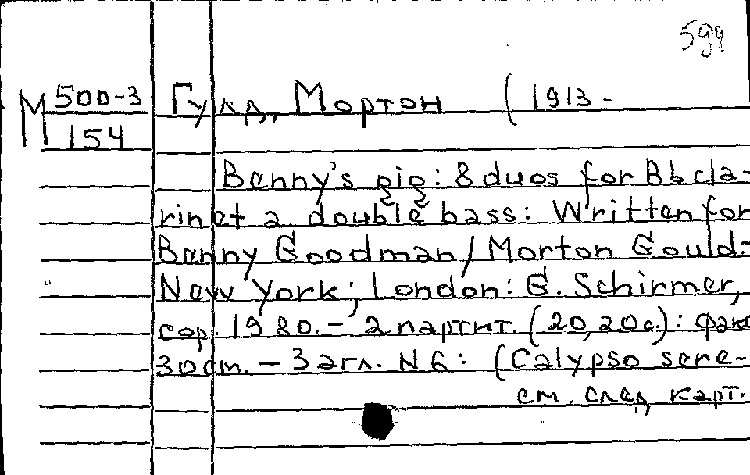 599
М 500-3
154
Гулд, Мортон ( 1913 -
Benny's gig: 8 duos for Bb cla-
rinet a double bass: Written for
Benny Goodman / Morton Gould.-
New York; London: G. Schirmer,
cop. 1980. - 2 партит. (20, 20с.): фак
30cm. - Загл. N6: (Calypso sere-
см. след. карт.